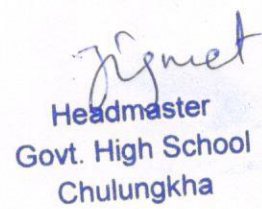 Jigmet
Headmaster
Govt. High School
Chulungkha